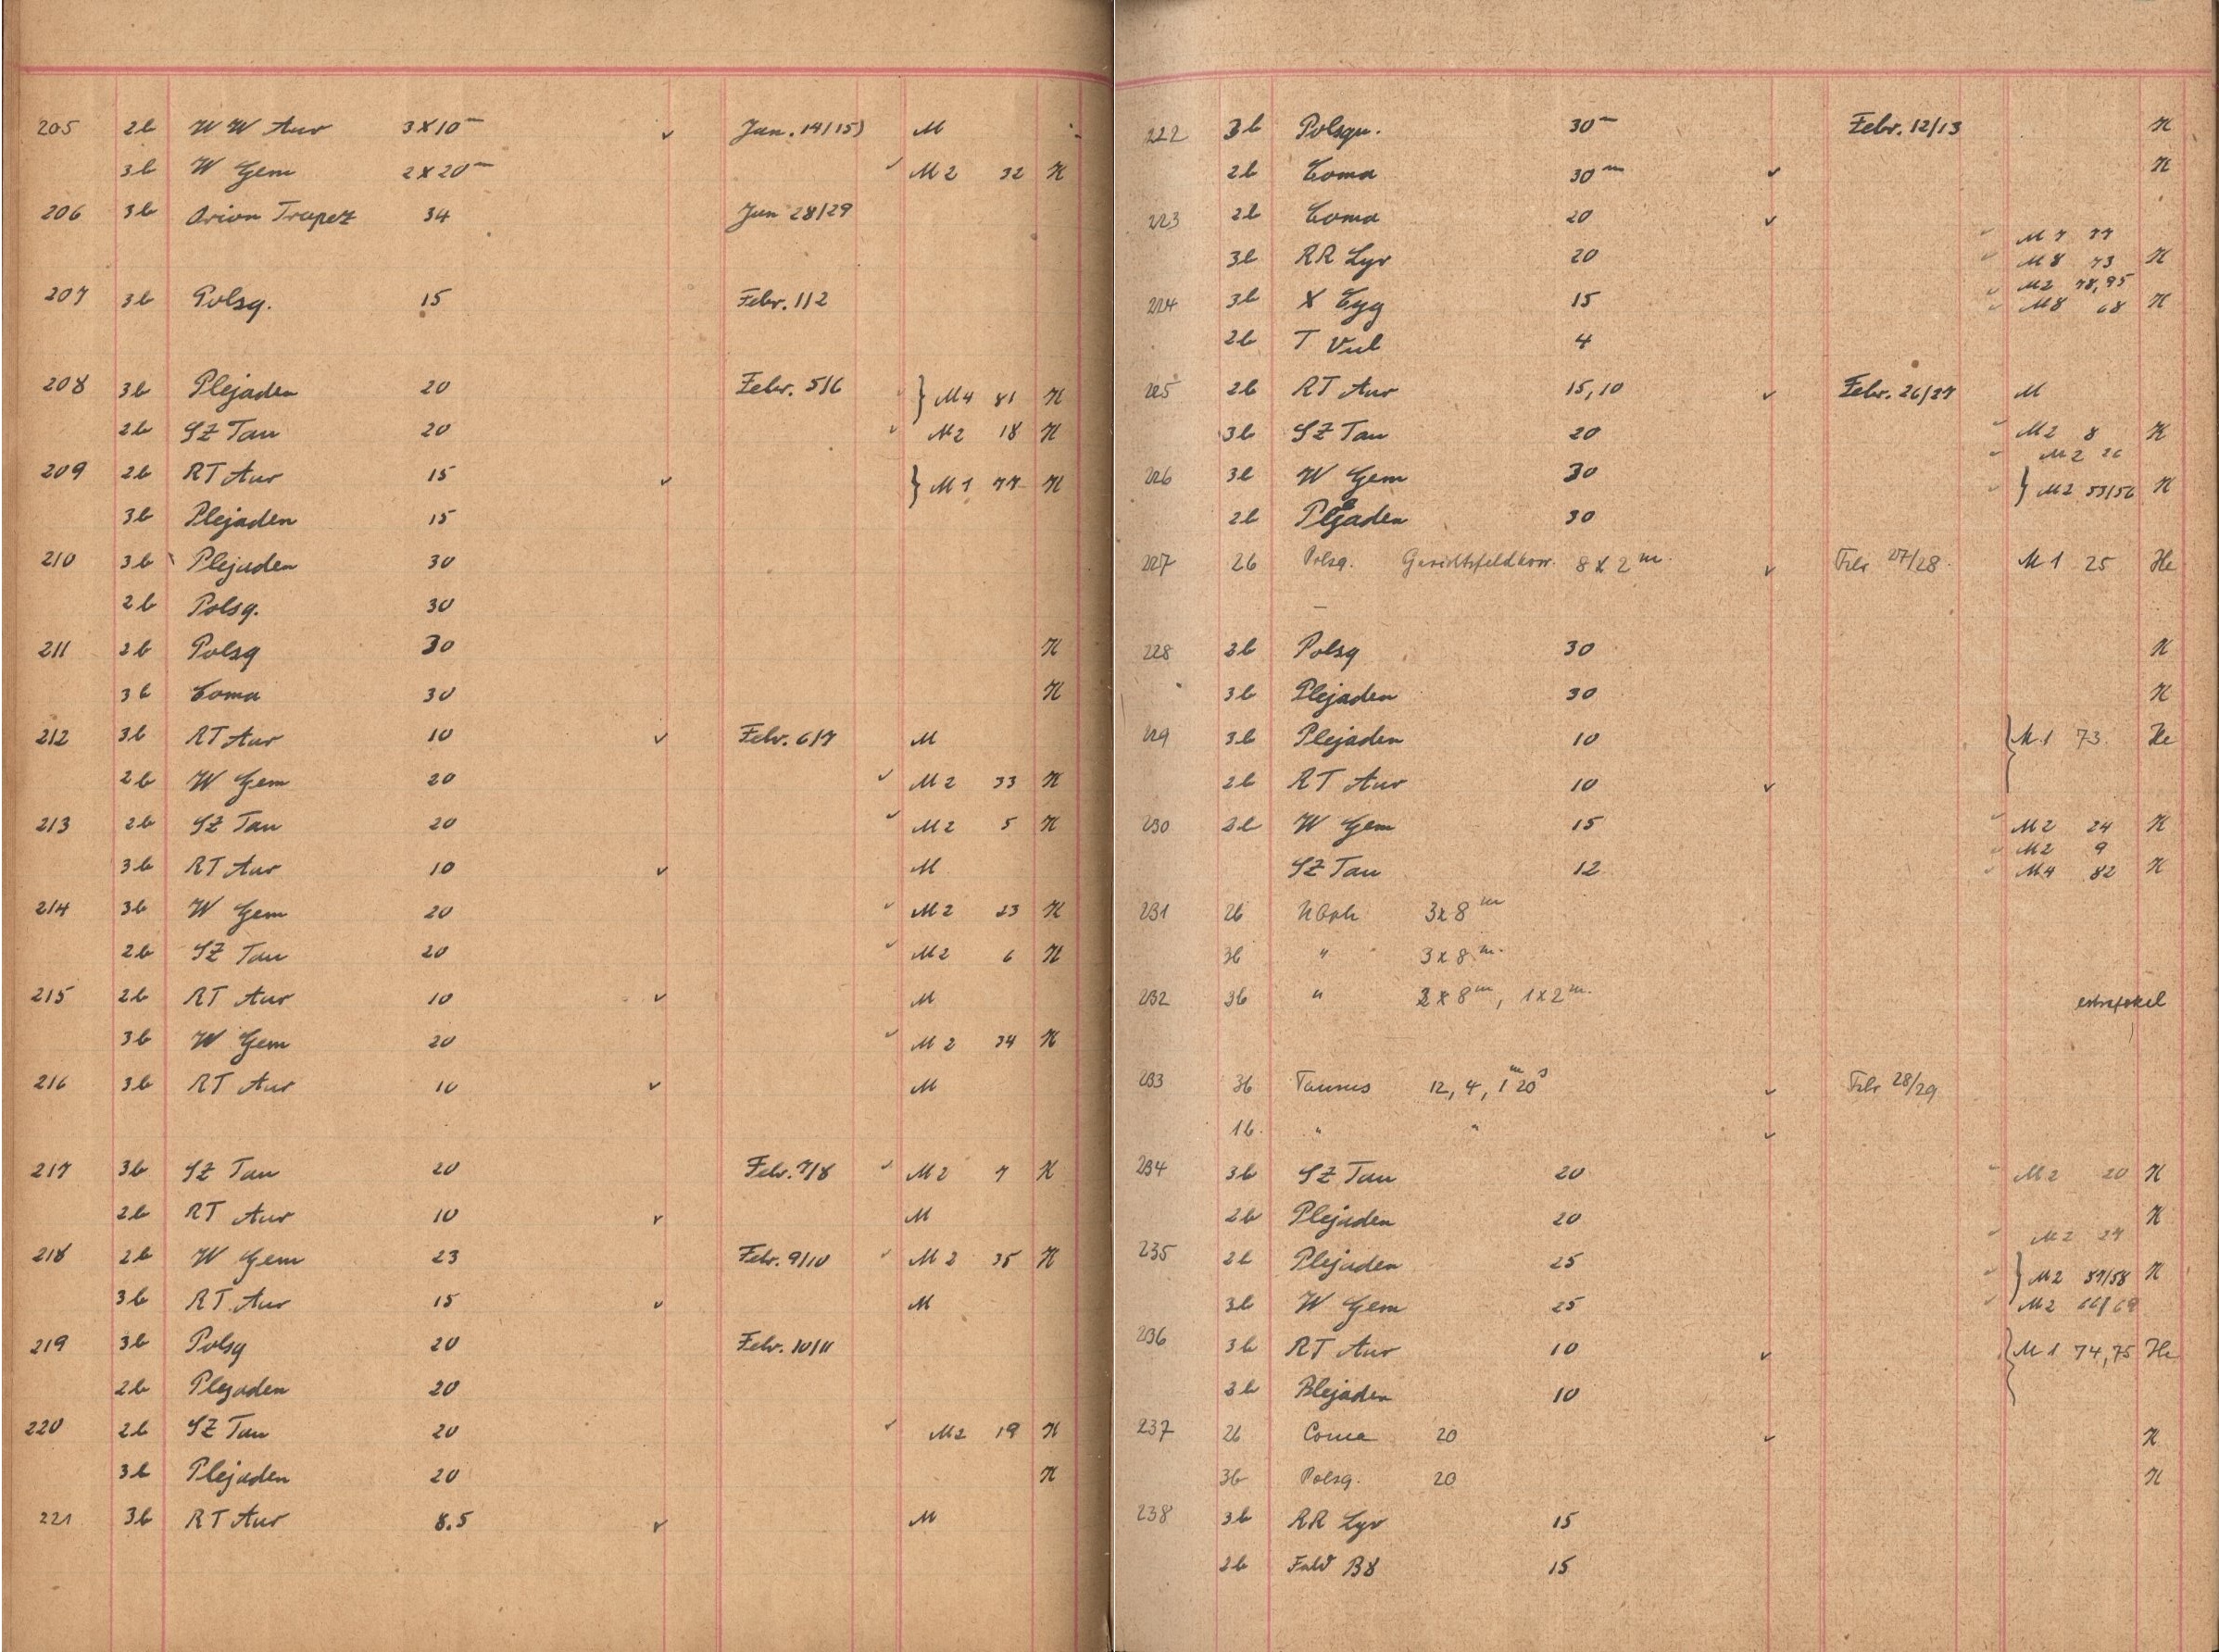 205 2b WW Aur 3x10m v Jan. 14/15) M
3b W Gem 2x20m M2 32 K
206 3b Orion Trapez 34 Jan 28/29
207 3b Polsq. 15 Febr. 1/2
208 3b Plejaden 20 Febr. 5/6 } M4 81 K
2b SZ Tau 20 M2 18 K
209 2b RT Aur 15 v } M1 77 K
3b Plejaden 15
210 3b Plejaden 30
2b Polsq. 30
211 2b Polsq 30 K
3b Coma 30 K
212 3b RT Aur 10 v Febr. 6/7 M
2b W Gem 20 M2 33 K
213 2b SZ Tau 20 M2 5 K
3b RT Aur 10 v M
214 3b W Gem 20 M2 23 K
2b SZ Tau 20 M2 6 K
215 2b RT Aur 10 v M
3b W Gem 20 M2 34 K
216 3b RT Aur 10 v M
217 3b SZ Tau 20 Febr. 7/8 M2 7 K
2b RT Aur 10 v M
218 2b W Gem 23 Febr. 9/10 M2 35 K
3b RT Aur 15 v M
219 3b Polsq 20 Febr. 10/11
2b Plejaden 20
220 2b SZ Tau 20 M2 19 K
3b Plejaden 20 K
221 3b RT Aur 8.5 v M
222 3b Polsqu. 30m Febr. 12/13 K
2b Coma 30m v K
223 2b Coma 20 v
M7 77
3b RR Lyr 20 M8 73 K
M2 78,95
224 3b X Cyg 15 M8 68 K
2b T Vul 4
225 2b RT Aur 15,10 v Febr. 26/27 M
3b SZ Tau 20 M2 8 K
M2 26
226 3b W Gem 30 } M2 55/56 K
2b Plejaden 30
227 2b Polsq. Gesichtsfeldkorr. 8x2m. v Febr 27/28. M1 25 He
228 2b Polsq 30 K
3b Plejaden 30 K
229 3b Plejaden 10 } M1 73. He
2b RT Aur 10 v
230 2b W Gem 15 M2 24 K
M2 9
SZ Tau 12 M4 82 K
231 2b 3x8m
3b " 3x8m.
232 3b " 2x8m, 1x2m. extrafokal
233 3b Taurus 12, 4, 1m20s v Febr 28/29
1b. " " v
234 3b SZ Tau 20 M2 20 K
2b Plejaden 20 K
M2 27
235 2b Plejaden 25 } M2 57/58 K
3b W Gem 25 M2 68/69
236 3b RT Aur 10 v } M1 74,75 He
2b Plejaden 10
237 2b Coma 20 v K
3b Polsq. 20 K
238 3b RR Lyr 15
2b Feld B8 15